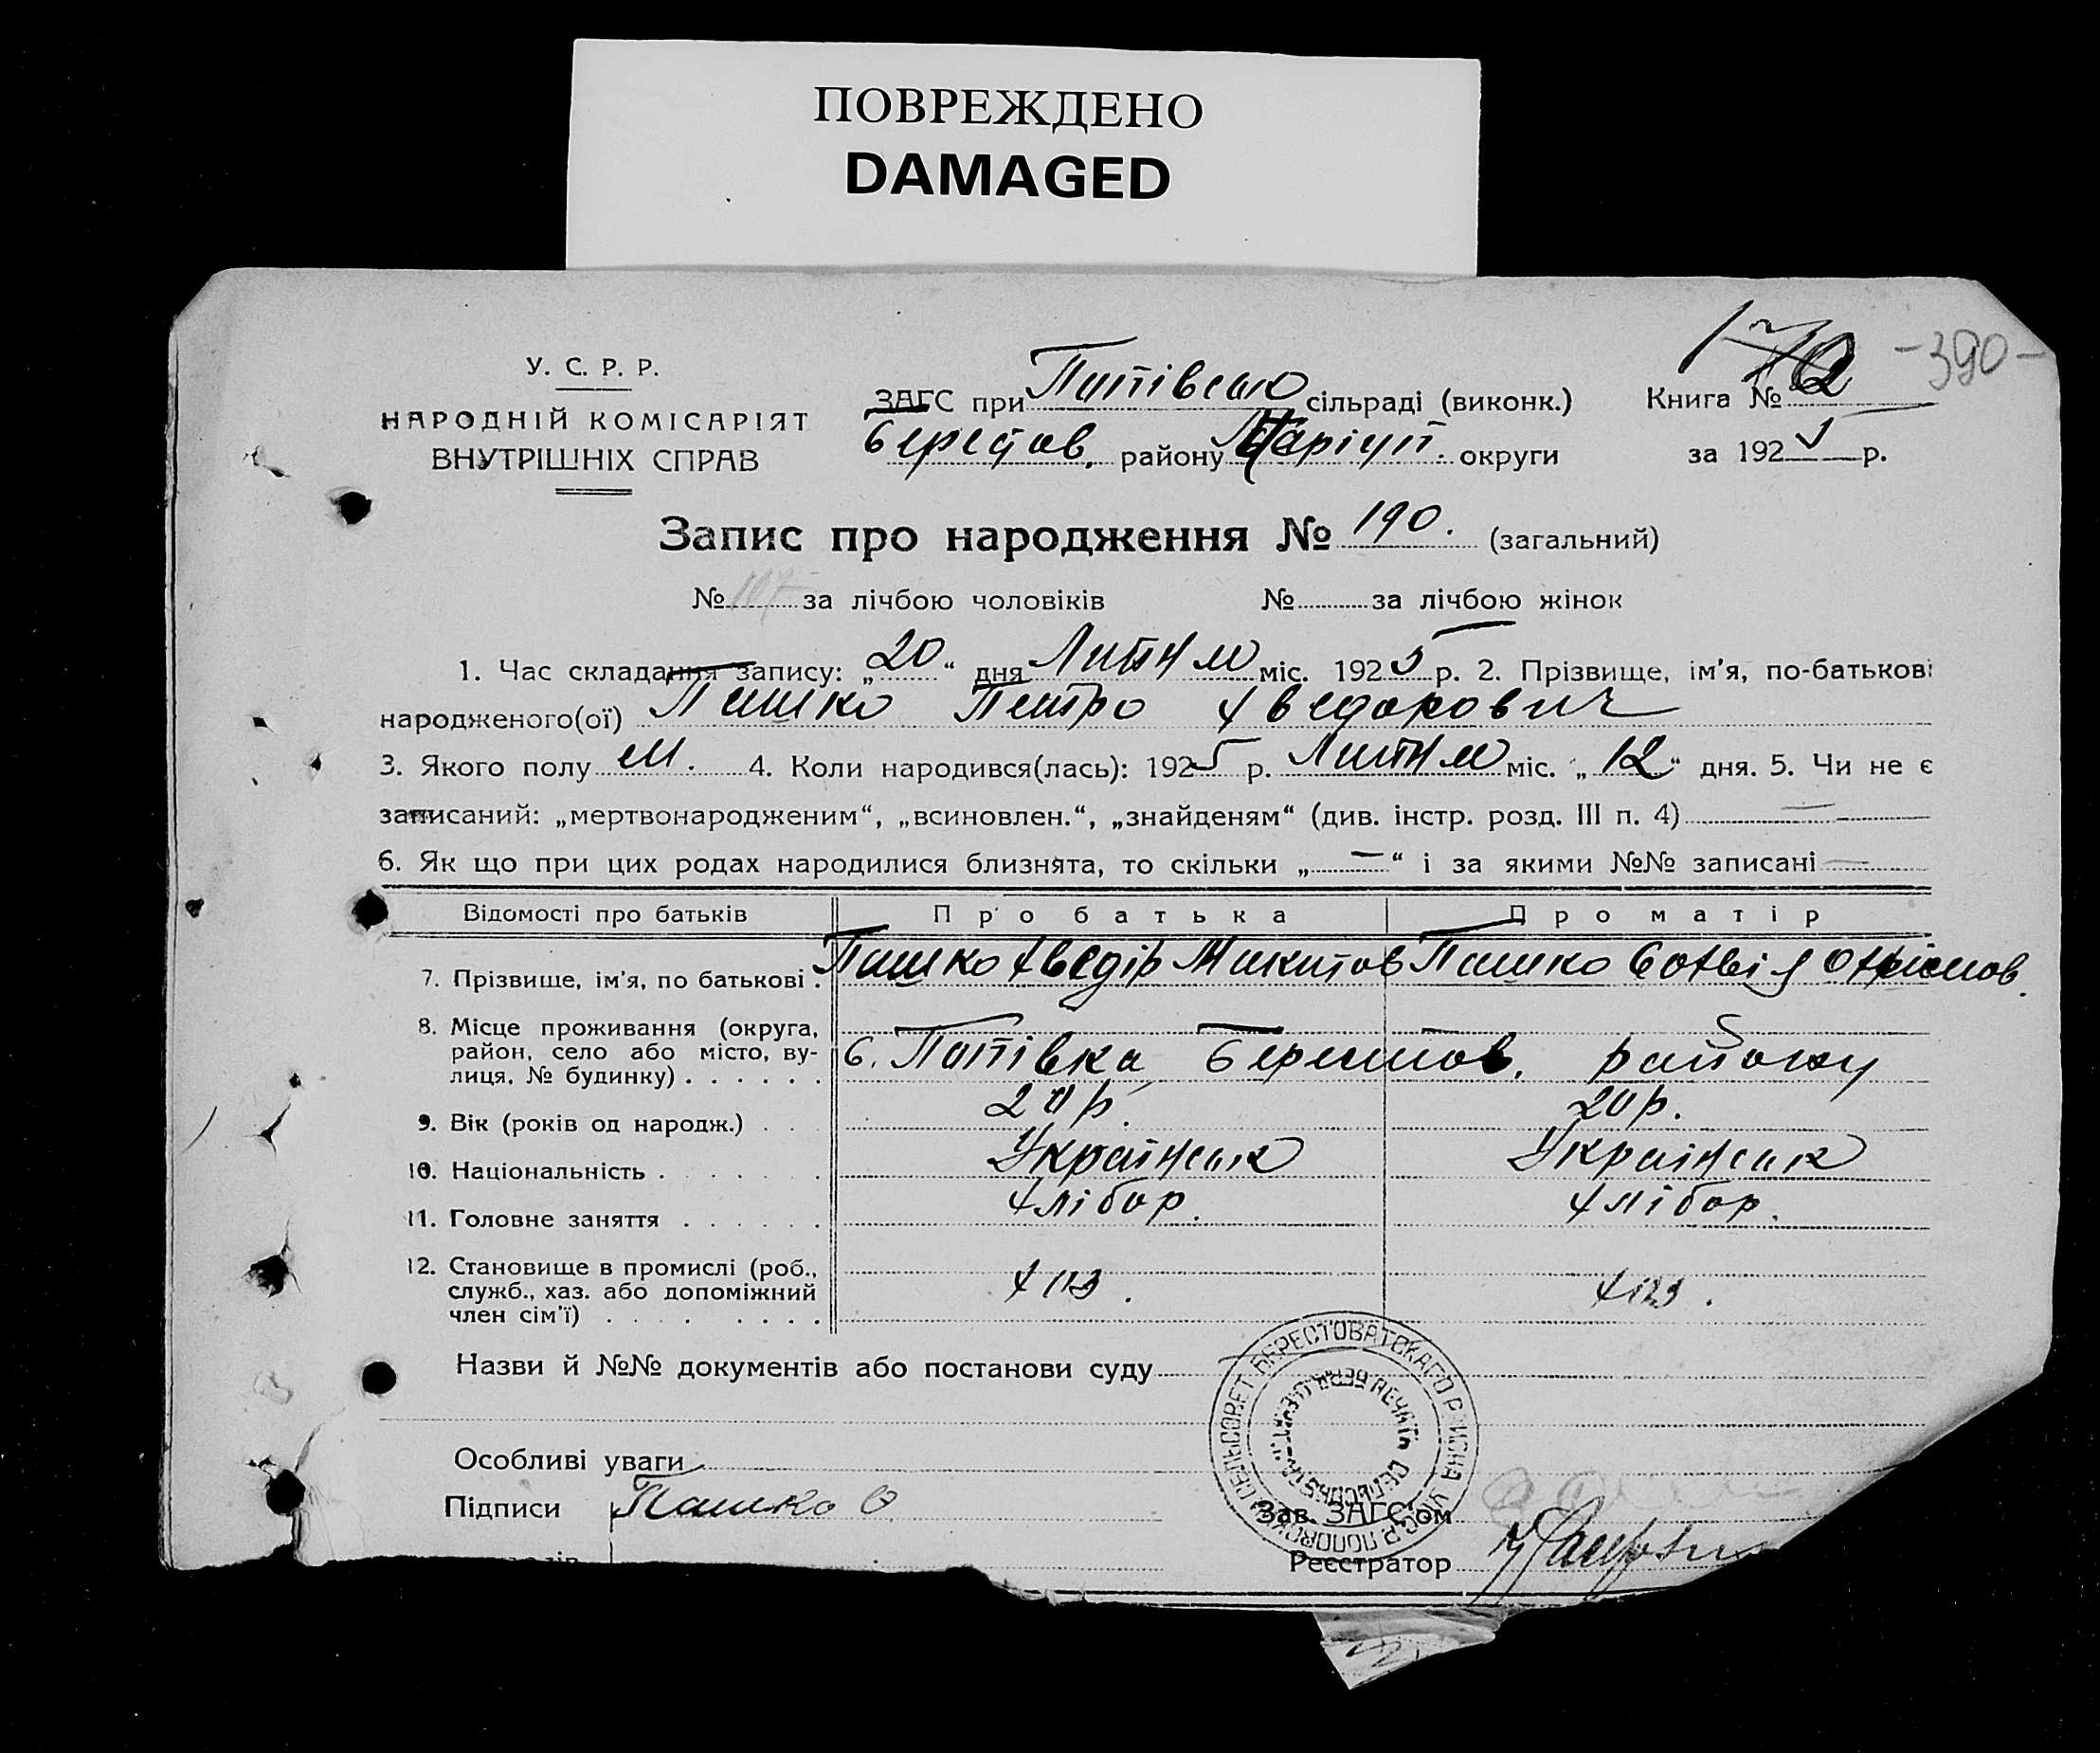 ПОВРЕЖДЕНО
DAMAGED
-390-
У. С. Р. Р.
НАРОДНІЙ КОМІСАРІЯТ
ВНУТРІШНІХ СПРАВ
ЗАГС при сільраді (виконк.)
Книга №
району округи
за 1925 р.
Запис про народження № 190. (загальний)
№ 107 за лічбою чоловіків № за лічбою жінок
1. Час складання запису: „20“ дня міс. 1925 р. 2. Прізвище, ім'я, по-батькові
народженого(ої) Пашко Петро Хведорович
3. Якого полу М. 4. Коли народився(лась): 1925 р. міс. „12“ дня. 5. Чи не є
записаний: „мертвонародженим“, „всиновлен.“, „знайденям“ (див. інстр. розд. III п. 4) —
6. Як що при цих родах народилися близнята, то скільки „—“ і за якими №№ записані —
Відомості про батьків Про батька Про матір
7. Прізвище, ім'я, по батькові . Пашко Хведір Микитов Пашко
8. Місце проживання (округа,
район, село або місто, ву-
лиця, № будинку) . . . . . . с. Попівка Берестов. району
9. Вік (років од народж.) . . . 20 р. 20 р.
10. Національність . . . . . . Українськ Українськ
11. Головне заняття . . . . . . Хлібор. Хлібор.
12. Становище в промислі (роб.,
служб., хаз. або допоміжний
член сім'ї) . . . . . . . . Хаз. Хаз.
Назви й №№ документів або постанови суду
Особливі уваги
Підписи Пашко Ѳ
Зав. ЗАГС'ом
Реєстратор